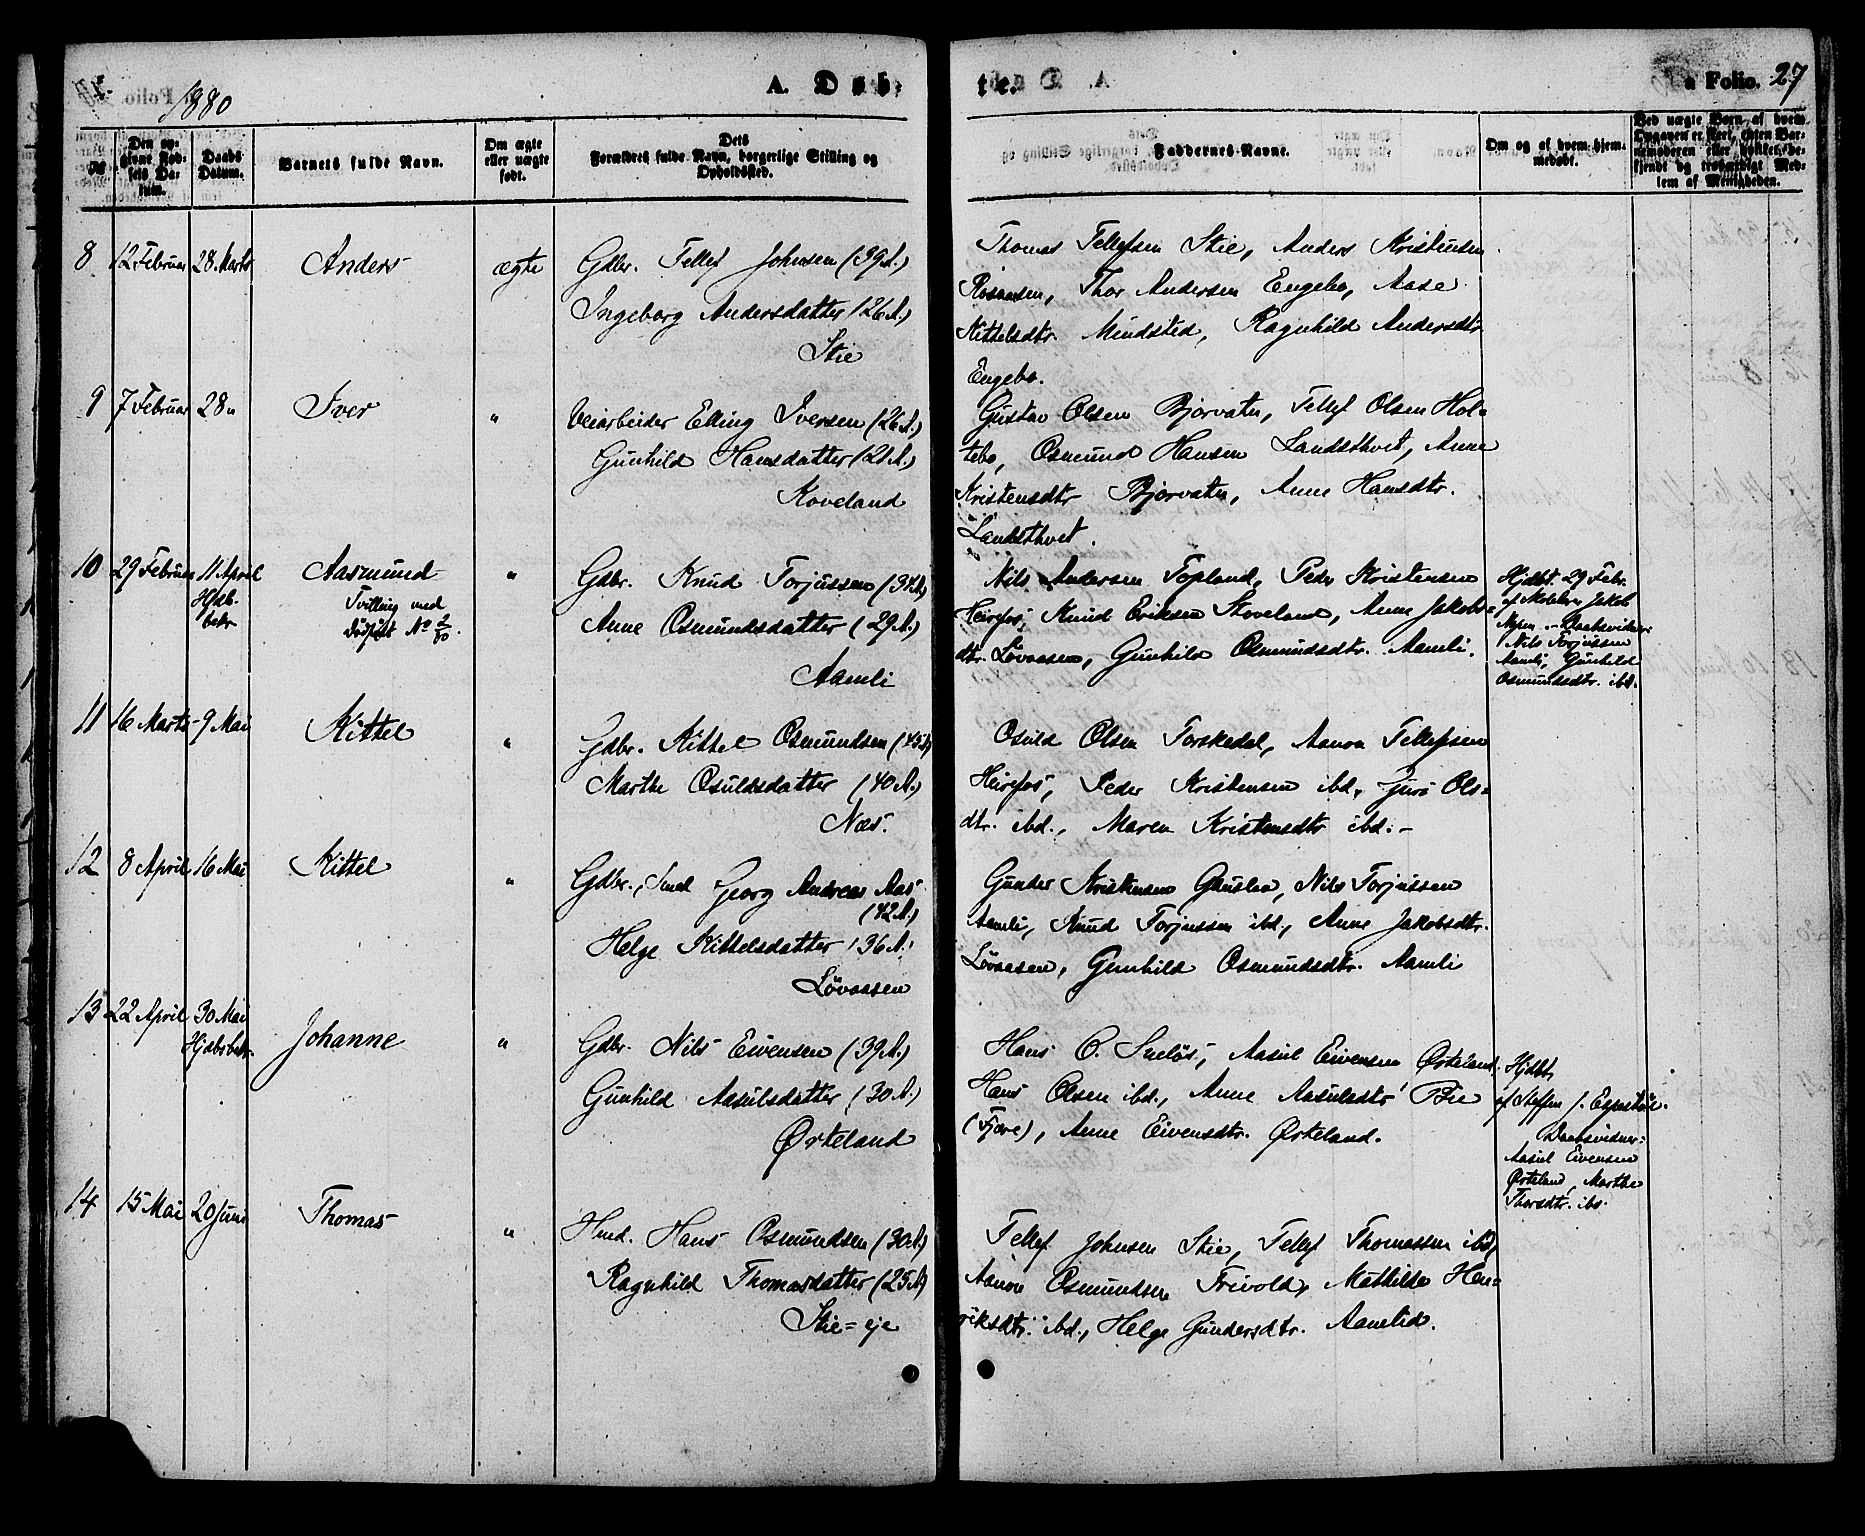 1880
A. Døb-
te.
a Folio. 27
№
Den op-
givne Fød-
sels Da-
tum.
Daabs
Datum.
Barnets fulde Navn.
Om ægte
eller uægte
født.
Dets
Forældres fulde Navn, borgerlige Stilling og
Opholdssted.
Faddernes Navne.
Om og af hvem hjem-
medøbt.
Ved uægte Børn, af hvem
Opgaven er skeet, enten Bar-
nemoderen eller hvilket be-
kjendt og troværdigt Med-
lem af Menigheden.
8 12 Februar 28 Marts Anders ægte
Gdbr. Tellef Johnsen (39 A.)
Ingeborg Andersdatter (26 A.)
Stie
Thomas Tellefsen Stie, Anders Kristensen
Rosaasen, Thor Andersen Engebo, Aase
Kittelsdtr. Mindsted, Ragnhild Andersdtr
Engebo.
9 7 Februar 28 " Iver "
Veiarbeider Elling Iversen (26 A.)
Gunhild Hansdatter (21 A.)
Koveland
Gustav Olsen Bjorvatn, Tellef Olsen Hol-
tebo, Osmund Hansen Landsthvet, Anne
Kristensdtr Bjorvatn, Anne Hansdtr.
Landsthvet.
10 29 Februar 11 April Aasmund "
Hjdb.
bekr.
Tvilling med
dødfødt No 2/80.
Gdbr. Knud Torjussen (34 A.)
Anne Osmundsdatter (29 A.)
Aamli
Nils Andersen Topland, Peder Kristensen
Heirefos, Knud Eriksen Skoveland, Anne Jakobs-
dtr. Løvaasen, Gunhild Osmundsdtr. Aamli.
Hjdbt. 29 Febr.
af Jakob
Daabsvidner:
Nils Torjussen
Aamli, Gunhild
Osmundsdtr. ibd.
11 16 Marts 9 Mai Kittel "
Gdbr. Kittel Osmundsen (45 A.)
Marthe Osuldsdatter (40 A.)
Næs.
Osuld Olsen Torskedal, Aanon Tellefsen
Heirefos, Peder Kristensen ibd., Juro Ols-
dtr. ibd., Maren Kristensdtr ibd. -
12 8 April 16 Mai Kittel "
Gdbr., Smed Georg Andreas Aas
(42 A.)
Helge Kittelsdatter (36 A.)
Løvaasen
Gunder Kristensen Gauslaa, Nils Torjussen
Aamli, Knud Torjussen ibd., Anne Jakobsdtr.
Løvaasen, Gunhild Osmundsdtr. Aamli
13 22 April 30 Mai Johanne "
Hjdbsbekr.
Gdbr. Nils Eivensen (39 A.)
Gunhild Aasulsdatter (30 A.)
Ørteland
Hans O. Sneløs, Aasul Eivensen Ørteland,
Hans Olsen ibd., Anne Aasulsdtr Bie
(Fjære), Anne Eivensdtr. Ørteland.
Hjdbt.
af Steffen J. Espestøl.
Daabsvidner:
Aasul Eivensen
Ørteland, Marthe
Thorsdtr. ibd.
14 15 Mai 20 Juni Thomas "
Hmd. Hans Osmundsen (30 A.)
Ragnhild Thomasdatter (25 A.)
Stie-eje
Tellef Johnsen Stie, Tellef Thomassen ibd.,
Aanon Osmundsen Trivold, Mathilde Hen-
riksdtr. ibd., Helge Gundersdtr. Aamlid.